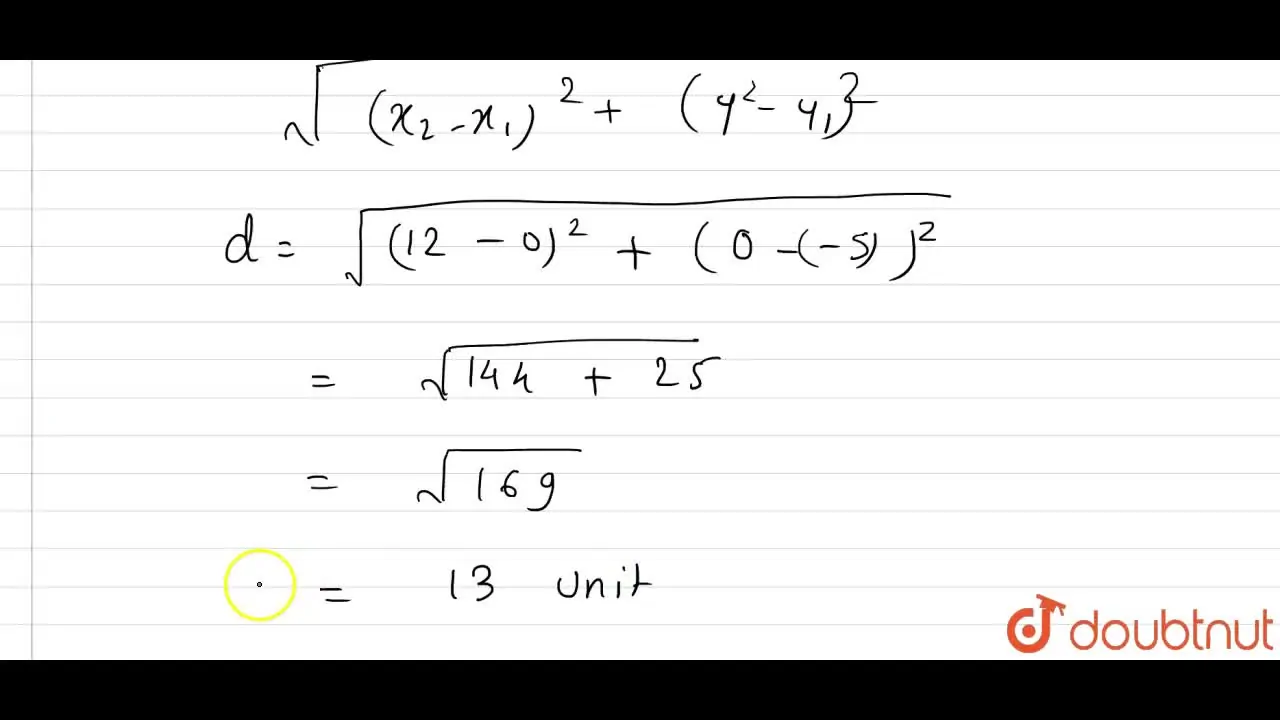 √(x₂ - x₁)² + (y² - y₁)²
d = √(12 - 0)² + (0 - (-5))²
= √144 + 25
= √169
= 13 unit
doubtnut